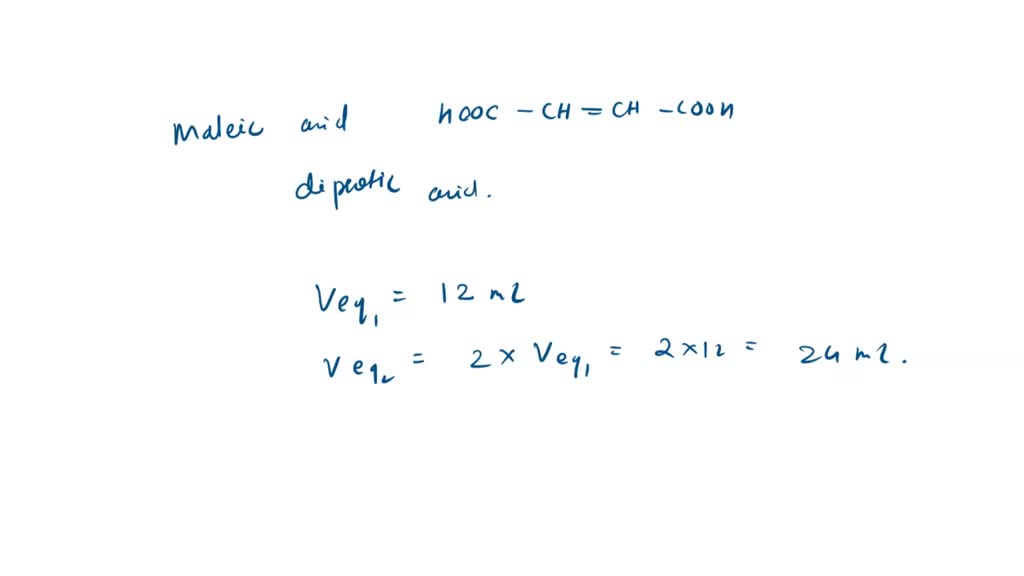 Maleic acid hOOC – CH = CH – COOH
diprotic acid.
Veq₁ = 12 mL
Veq₂ = 2 × Veq₁ = 2×12 = 24 mL.